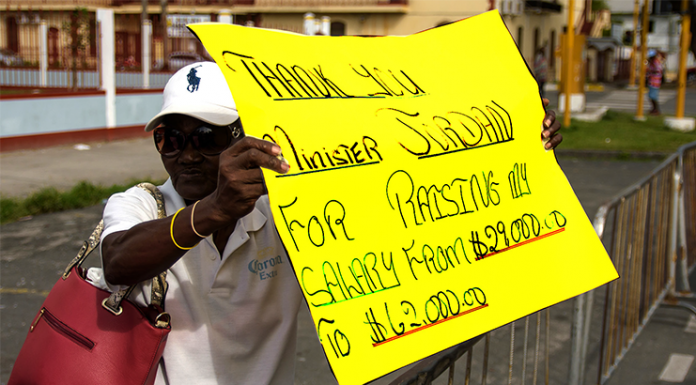 THANK YOU
MINISTER JORDAN
FOR RAISING MY
SALARY FROM $29,000.00
TO $62,000.00
Corona
Ex